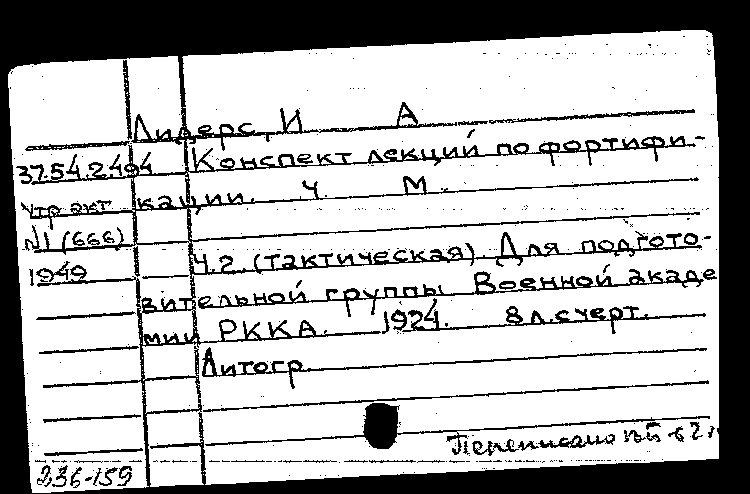 Лидерс, И А
37.54.2.494 Конспект лекций по фортифи-
Утр. акт кации. Ч. М.
№1 (666)
Ч.2. (тактическая). Для подгото-
1949
вительной группы Военной акаде
мии РККА. 1924. 8 л. с черт.
Литогр.
Переписано
236-159